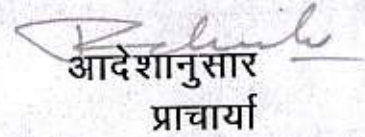 आदेशानुसार
प्राचार्या